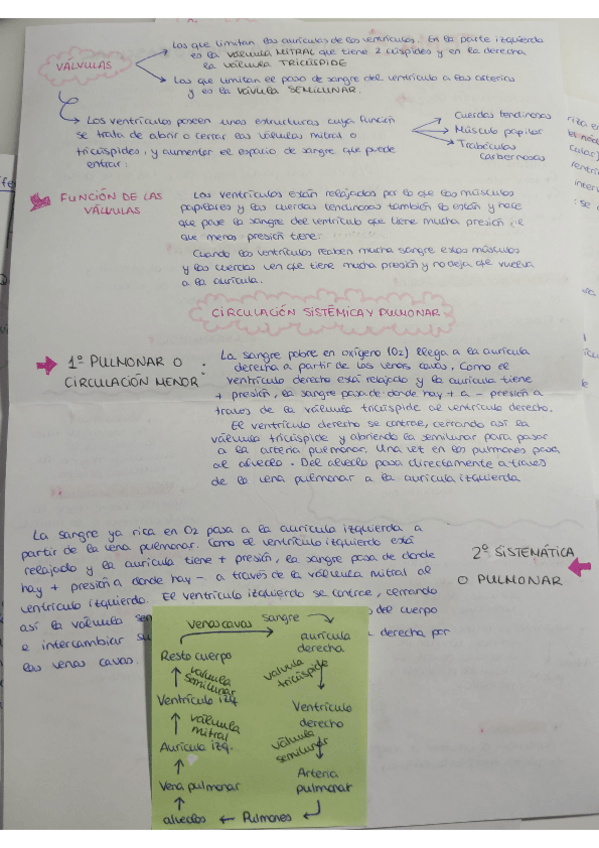 Las que limitan las aurículas de los ventrículos. En la parte izquierda
es la VÁLVULA MITRAL que tiene 2 cúspides y en la derecha
la VÁLVULA TRICÚSPIDE
VÁLVULAS
Las que limitan el paso de sangre del ventrículo a las arterias
y es la VÁVULA SEMILUNAR.
Los ventrículos poseen unas estructuras cuya función
se trata de abrir o cerrar las válvulas mitral o
tricúspides, y aumentar el espacio de sangre que puede
entrar:
Cuerdas tendinosas
Músculo papilar
Trabéculas
carbernosas
FUNCIÓN DE LAS
VÁLVULAS
Los ventrículos están relajados por lo que los músculos
papilares y las cuerdas tendinosas también lo están y hace
que pase la sangre del ventrículo que tiene mucha presión
que menos presión tiene.
Cuando los ventrículos reciben mucha sangre esos músculos
y las cuerdas ven que tiene mucha presión y no deja que vuelva
a la aurícula.
CIRCULACIÓN SISTÉMICA Y PULMONAR
1º PULMONAR O
CIRCULACIÓN MENOR:
La sangre pobre en oxígeno (O2) llega a la aurícula
derecha a partir de las venas cavas. Como el
ventrículo derecho está relajado y la aurícula tiene
+ presión, la sangre pasa de donde hay + a - presión a
traves de la válvula tricúspide al ventrículo derecho.
El ventrículo derecho se contrae, cerrando así la
válvula tricúspide y abriendo la semilunar para pasar
a la arteria pulmonar. Una vez en los pulmones pasa
al alveolo. Del alveolo pasa directamente a traves
de la vena pulmonar a la aurícula izquierda
La sangre ya rica en O2 pasa a la aurícula izquierda a
partir de la vena pulmonar. Como el ventrículo izquierdo está
relajado y la aurícula tiene + presión, la sangre pasa de donde
hay + presión a donde hay - a través de la válvula mitral al
ventrículo izquierdo. El ventrículo izquierdo se contrae, cerrando
así la válvula sem
del cuerpo
e intercambiar su
derecha por
las venas cavas.
2º SISTEMÁTICA
O PULMONAR
venas cavas
sangre
aurícula
derecha
valvula
tricúspide
Ventrículo
derecho
válvula
semilunar
Arteria
pulmonar
Pulmones
alveolos
Vena pulmonar
Aurícula izq.
válvula
mitral
Ventrículo izq
valvula
semilunar
Resto cuerpo